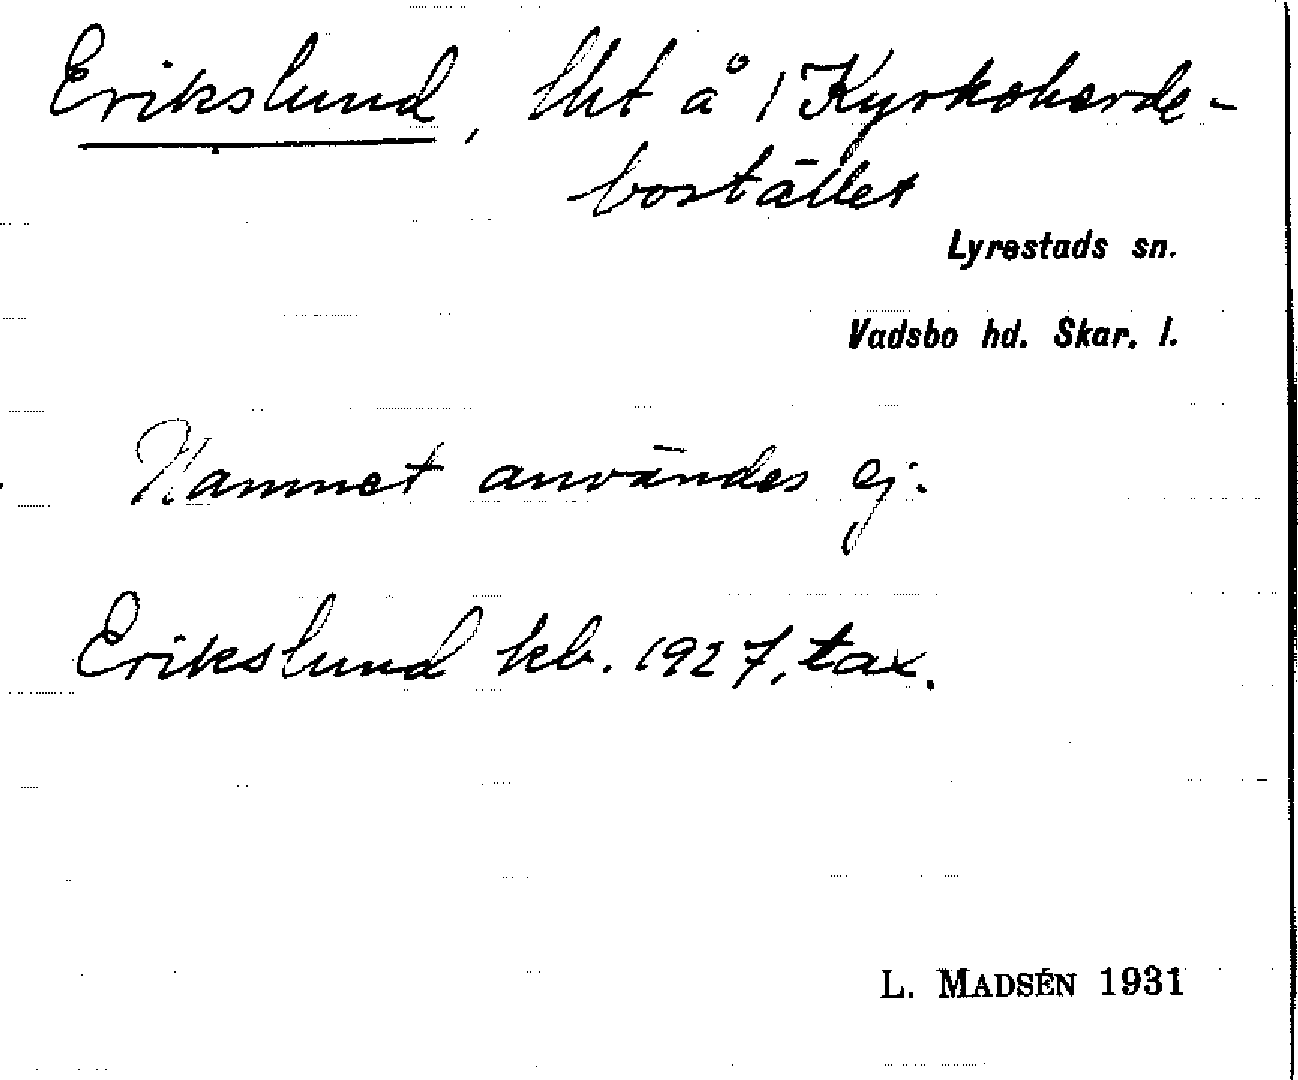 Erikslund, lht å 1 Kyrkoherde-
bostället
Lyrestads sn.
Vadsbo hd. Skar. l.
Namnet användes ej.
Erikslund kb. 1927, tax.
L. MADSÉN 1931